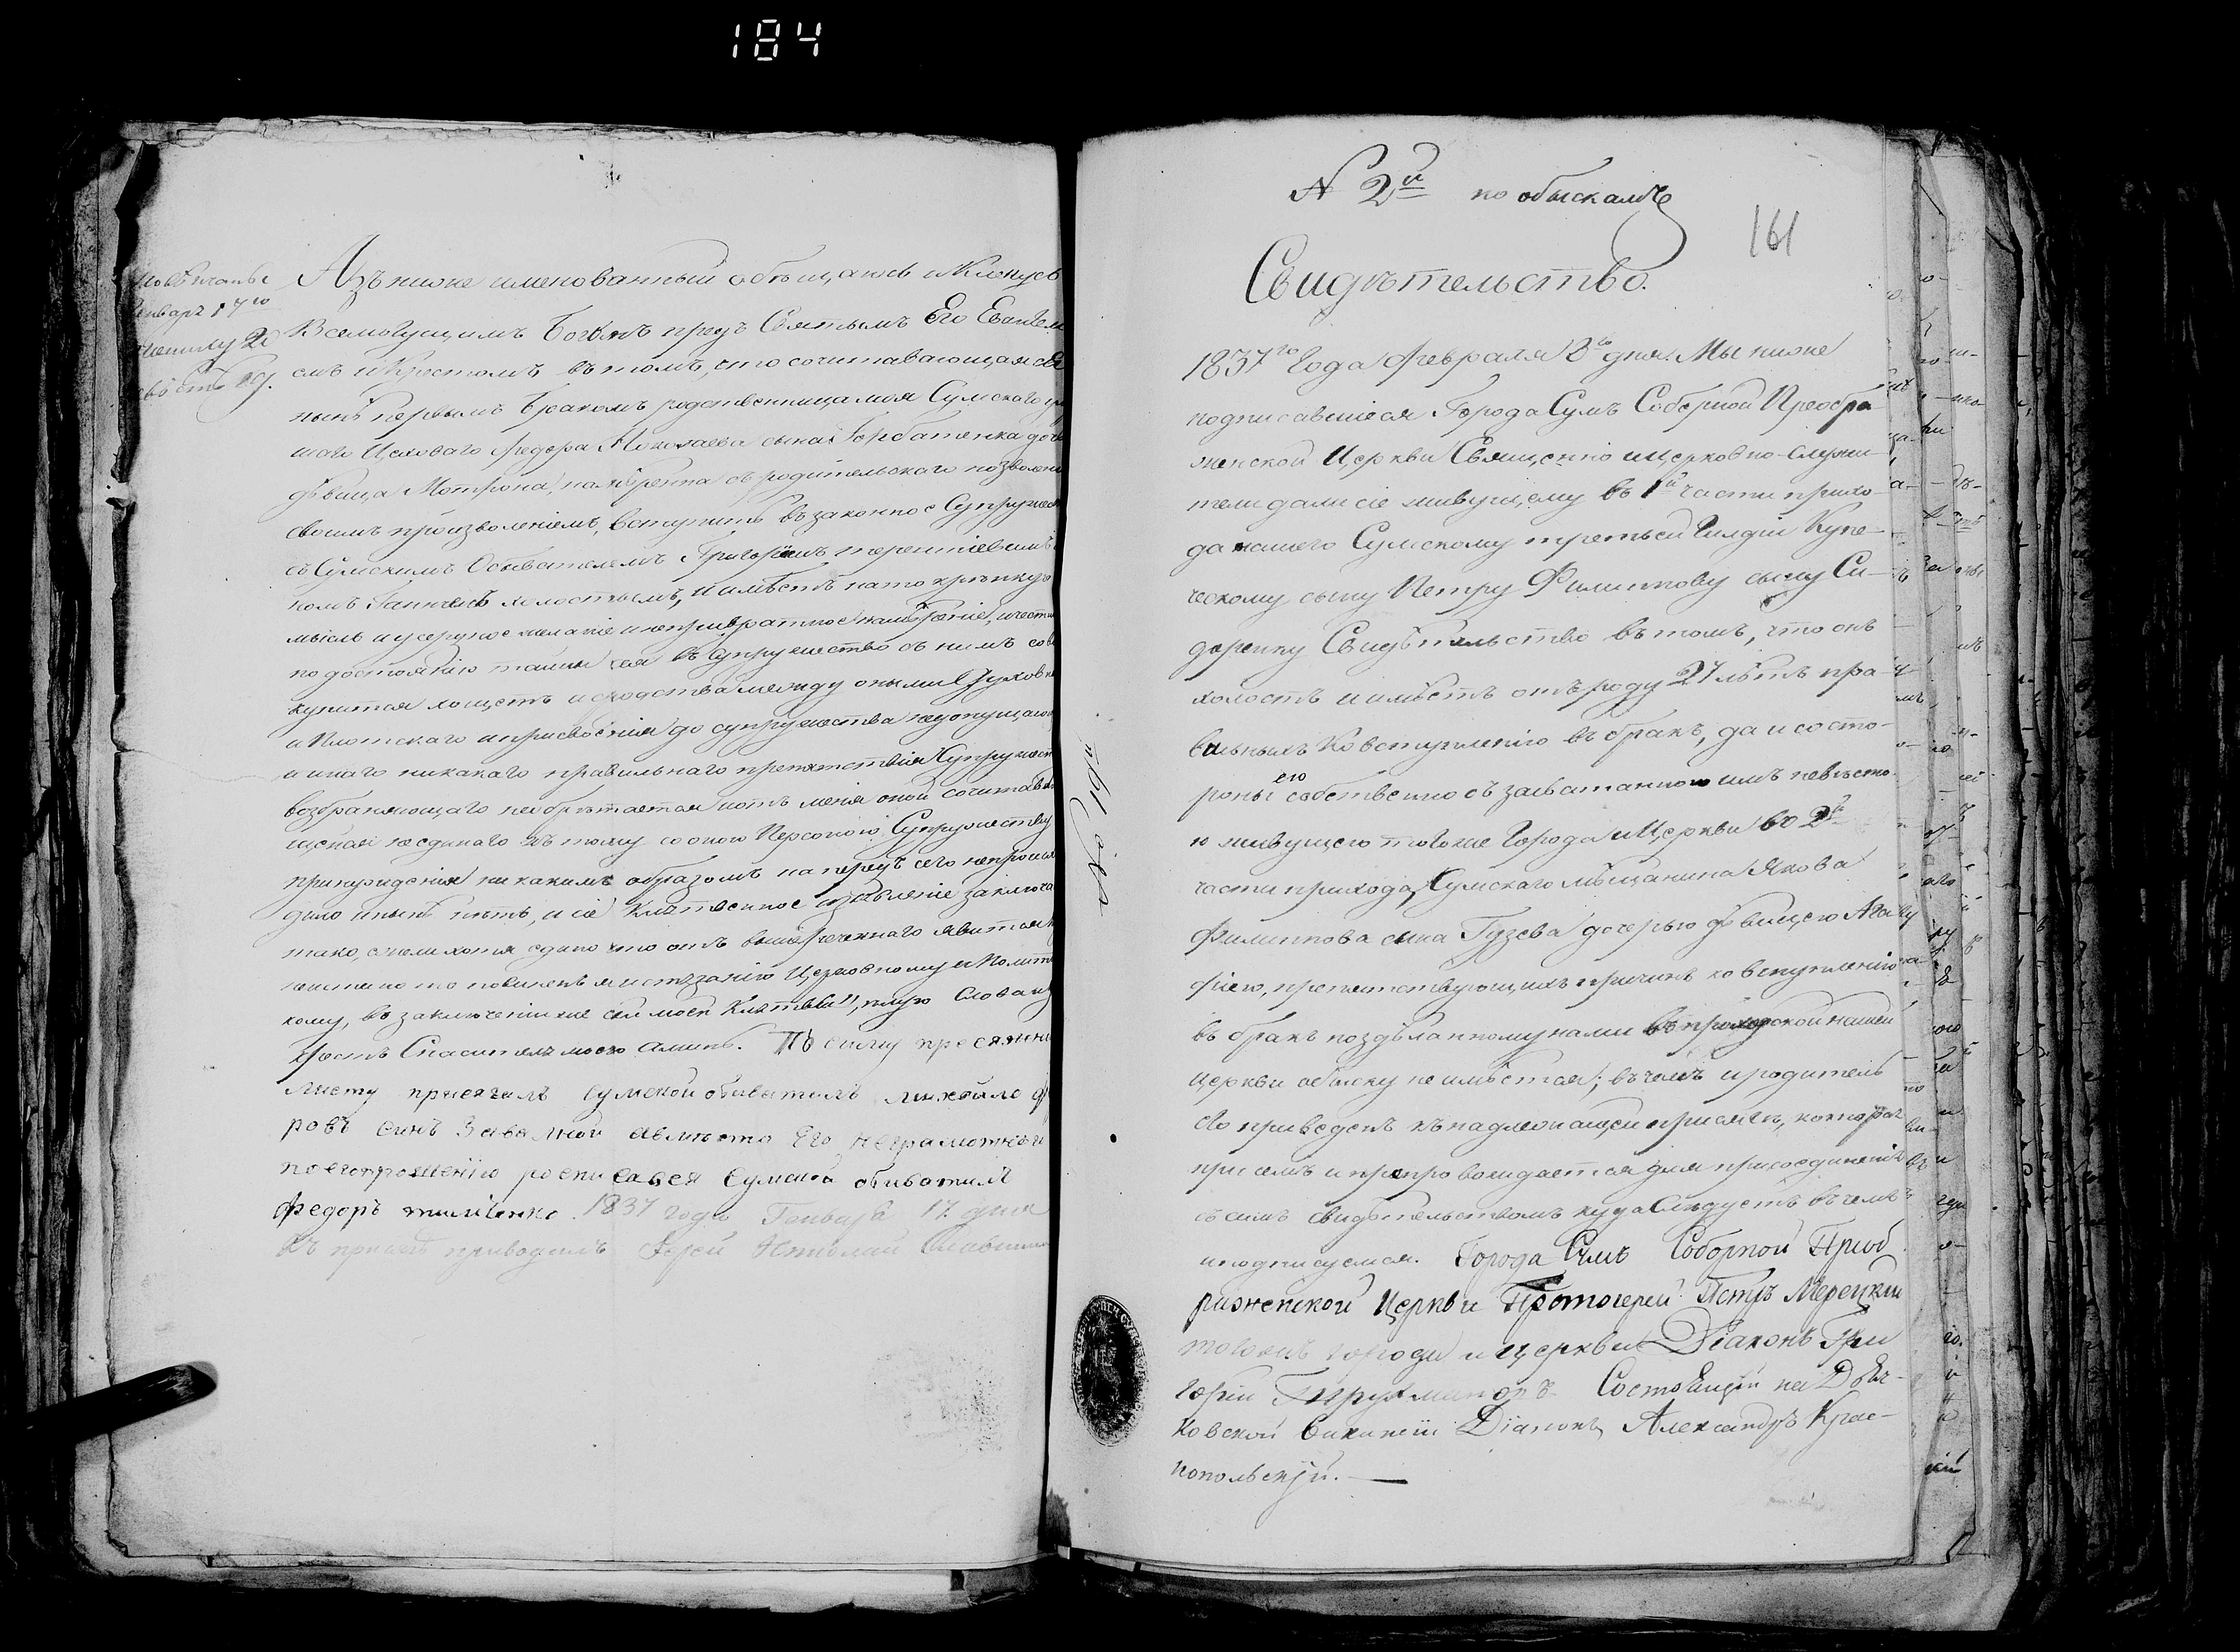 184
Января 17го
Азъ ниже именованный обѣщаюсь и Кленусь
Всемогущимъ Богомъ предъ Святымъ Его Евангелі
емъ и Крестомъ въ томъ, что сочитавающаяся
нынѣ первымъ бракомъ родственница моя Сумскаго
Цеховаго Федора Николаева сына Горбатенка дочь
дѣвица Мотрона, намѣренна съ родительскаго позволенія
своимъ произволеніемъ, вступить въ законное Супружеств
съ Сумскимъ Обывателемъ Григоріемъ терентіевымъ
холостымъ, и имѣетъ на то крѣпкую
мысль и усердное желаніе и непривратное намѣреніе, и чести
по достоянію тайны сея въ супружество съ нимъ сово
купится хощетъ и сродства между оными Духовна
и Плотскаго и присвоенія до супружества недопущающа
и инаго никакаго правильнаго препятствія Супружест
возбраняющаго необрѣтается и отъ меня оной сочитаваю
щейся неединаго къ тому со оною Персоною Супружеству
принужденія никакимъ образомъ на передъ сего непроисхо
дило и нынѣ нѣтъ, и сіе Клятвенное изъявленіе заключа
тако, ежели хотя едино что отъ вышереченнаго явится
истязанію Церковному и Полити
кому, въ заключеніи же сей моей Клятвы, цѣлую Слова и
Крестъ Спасителя моего аминь. По сему присяжно
листу присягалъ Сумской обыватель михайло Фе
ровъ синъ Завалной авмѣсто Его неграмотнаго
поегопрошенію росписался Сумской обиватиль
Федоръ 1837 года Генваря 17 дня
Къ присягѣ приводилъ Іерей Николай
N 2й по обыскамъ
161
Свидѣтельство.
1837го Года Февраля 3го дня. Мы ниже
подписавшіеся Города Сумъ Соборной Преобра
женской Церкви Священно и церковно-служи
тели дали сіе живущему въ 1й части прихо
да нашего Сумскому третьей Гилдіи Купе-
ческому сыну Петру Филиппову сыну Си-
доренку Свидѣтельство въ томъ, что онъ
холостъ и имѣетъ отъ роду 21 лѣтъ пра-
вильныхъ Ко вступленію въ бракъ, да и со сто-
роны его собственно съ засватанною имъ невѣсто-
ю живущею тогоже Города и Церкви во 2й
части прихода, Сумскаго мѣщанина Якова
Филиппова сына Гузева дочерью дѣвицею Ага
фіею, препятствующихъ причинъ ко вступленію
въ бракъ поздѣланному нами въ приходской нашей
церкви обыску не имѣется; въ чемъ и родитель
его приведенъ къ надлежащей присягѣ, которая
при семъ и препровождается для присоединенія
съ симъ свидѣтельствомъ куда Слѣдуетъ въ чемъ
и подписуемся. Города Сумъ Соборной Приоб
раженской Церкви Протоіерей Петръ Мерецкій
тогожъ города и церкви Діаконъ Гри
горій Состоящій на Дьяч-
ковской Вакансіи Діаконъ Александръ Крас-
нопольскій.